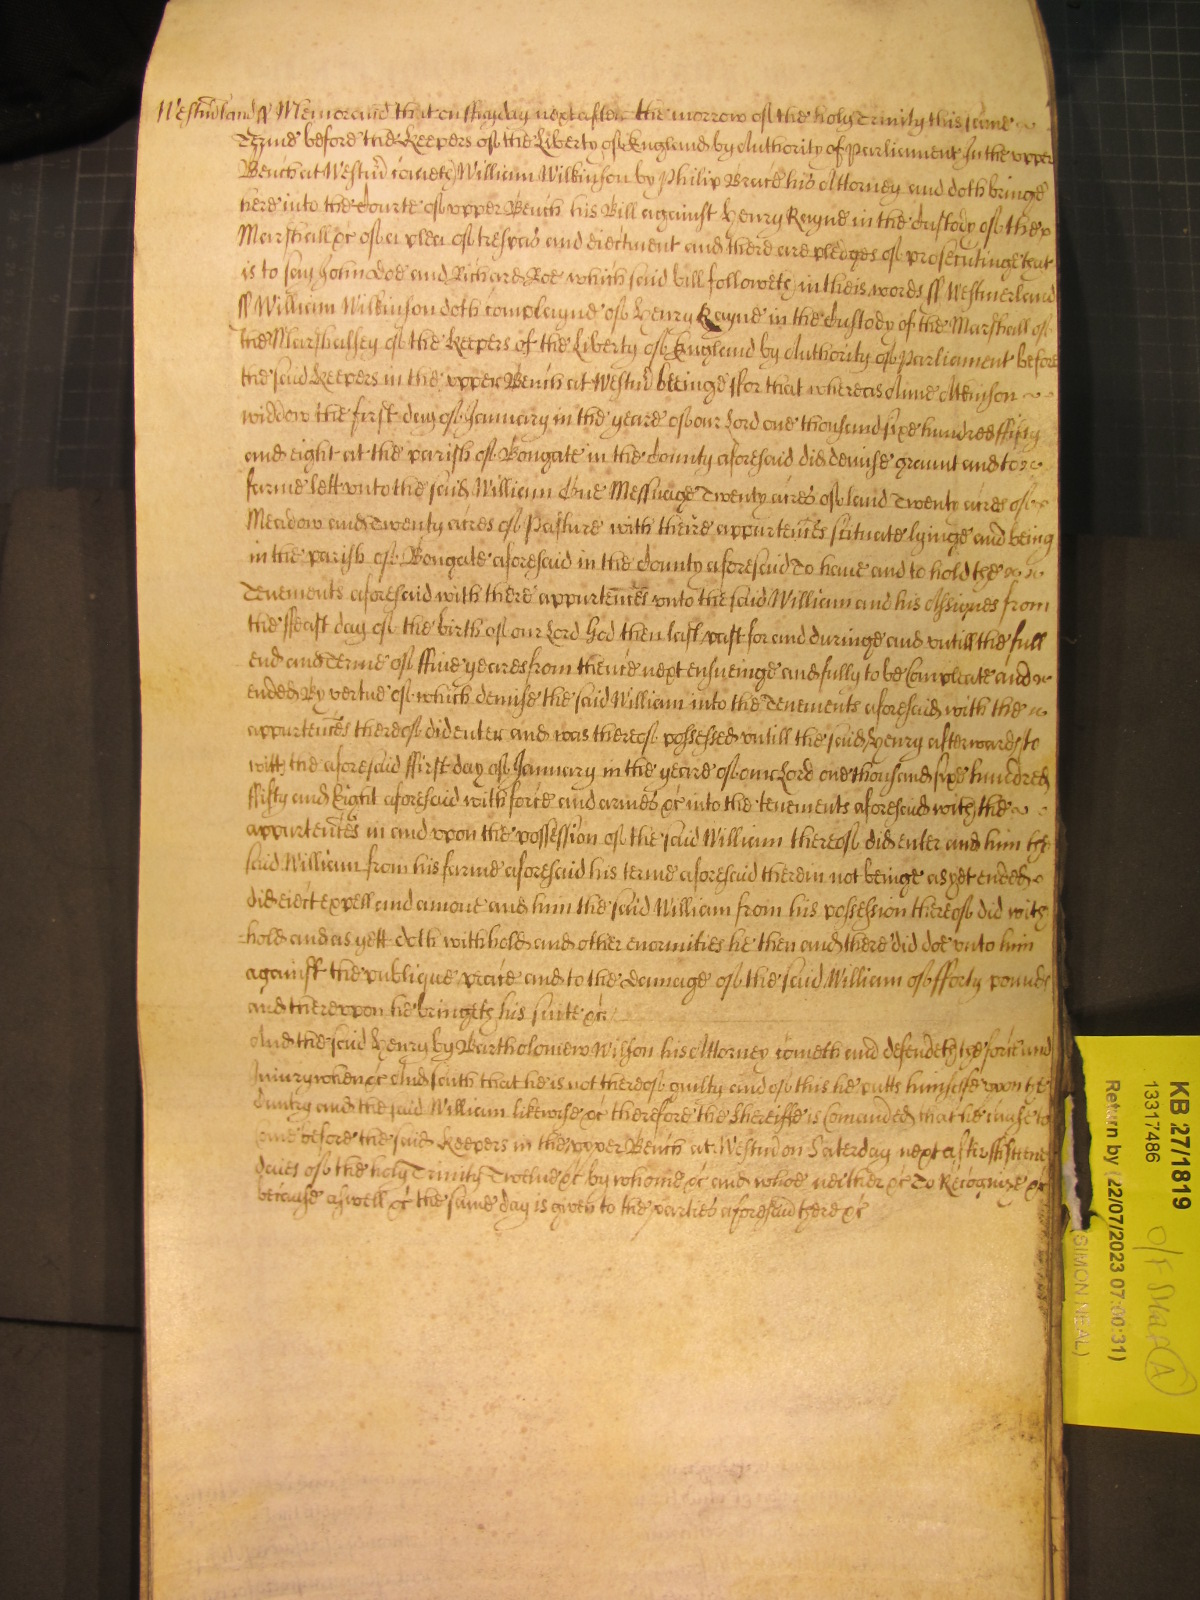 Westm̃land ss Memorand that on fryday next after the morrow of the holy Trinity this same
Terme before the Keepers of the Liberty of England by Authority of Parliament In the upper
Bench at Westm̃ cometh William Wilkinson by Philip Brace his Attorney and doth bringe
here into the Courte of upper Bench his Bill against Henry Rayne in the Custody of the
Marshall &c of a plea of trespas and eiectment and there are pledges of prosecutinge that
is to say John Doe and Richard Roe which said bill followeth in theis words ss Westmerland
ss William Wilkinson doth complayne of Henry Rayne in the Custody of the Marshall of
the Marshalsey of the Keepers of the Liberty of England by Authority of Parliament before
the said Keepers in the upper Bench at Westm̃ beeinge ffor that whereas Anne Atkinson
widdow the first day of January in the yeare of our Lord one thousand sixe hundred ffifty
and eight at the parish of Bongate in the County aforesaid did demise graunt and to
farme lett unto the said William One Messuage Twenty acres of land Twenty acres of
Meadow and Twenty acres of Pasture with theire appurten̄ces scituate lyinge and being
in the parish of Bongate aforesaid in the County aforesaid To have and to hold the
Tenements aforesaid with there appurten̄ces unto the said William and his Assignes from
the ffeast day of the birth of our Lord God then last past for and duringe and untill the full
end and Terme of ffive yeares from thence next ensueinge and fully to be Compleate and
ended By vertue of which demise the said William into the Tenements aforesaid with the
appurten̄ces thereof did enter and was thereof possessed untill the said Henry afterwards to
witt the aforesaid ffirst day of January in the yeare of our Lord one thousand sixe hundred
ffifty and Eight aforesaid with force and armes &c into the tenements aforesaid with the
appurten̄ces in and upon the possession of the said William thereof did enter and him the
said William from his farme aforesaid his terme aforesaid therein not beinge as yet ended
did eiect expell and amove and him the said William from his possession thereof did with
hold and as yett doth withhold and other enormities he then and there did doe unto him
against the publique peace and to the damage of the said William of fforty pounds
and thereupon he bringeth his suite &c
And the said Henry by Bartholomew Wilson his Attorney cometh and defendeth the force and
Iniury when &c And saith that he is not thereof guilty and of this he putts himselfe upon the
Cuntry and the said William likewise &c therefore the Shereiffe is Com̄anded that he cause to
come before the said Keepers in the upper Bench at Westm̃ on Saterday next after ffifteene
daies of the holy Trinity Twelve &c by whome &c and whoe neither &c To Recognize &c
because aswell &c the same day is given to the parties aforesaid there &c
KB 27/1819
13317486
Return by (22/07/2023 07:00:31)
(SIMON NEAL)
A